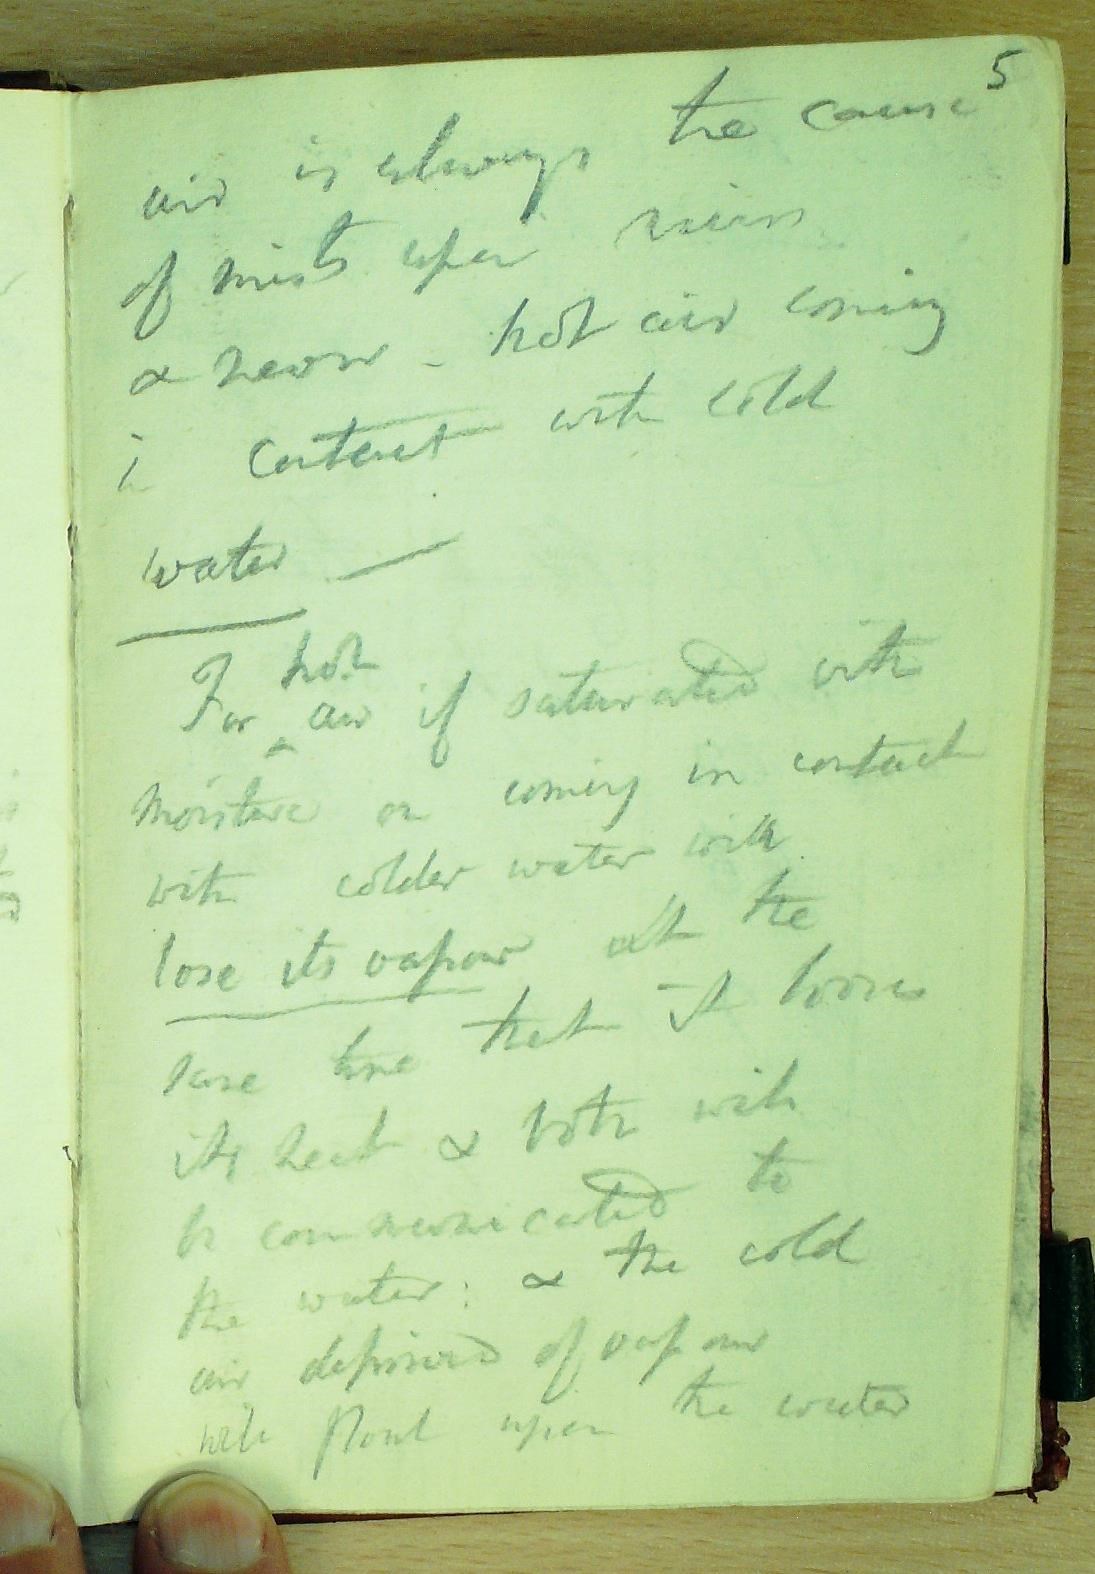 5
air is always the cause
of mists upon rivers
& – hot air coming
in contact with cold
water —
hot
For ^ air if saturated with
moisture on coming in contact
with colder water will
lose its vapour at the
same time that it looses
its heat & both will
be communicated to
the water : & the cold
air deprived of vapour
will float upon the water